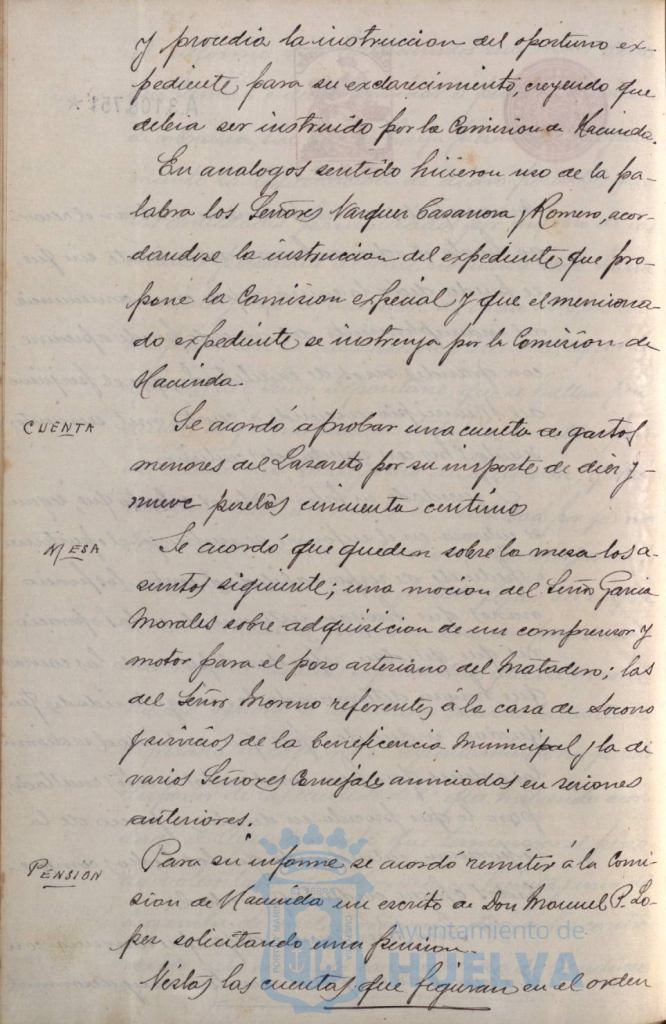 y procedia la instruccion del oportuno ex-
pediente para su esclarecimiento, creyendo que
debia ser instruido por la Comision de Hacienda.
En analogos sentido hicieron uso de la pa-
labra los Señores Vazquez Casanova y Romero, acor-
dandose la instruccion del expediente que pro-
pone la Comision especial y que el menciona-
do expediente se instruya por la Comision de
Hacienda.
CUENTA
Se acordó aprobar una cuenta de gastos
menores del Lazareto por su importe de diez y
nueve pesetas cincuenta centimos
MESA
Se acordó que queden sobre la mesa los a-
suntos siguiente; una mocion del Señor Garcia
Morales sobre adquisicion de un compresor y
motor para el pozo artesiano del Matadero; las
del Señor Moreno referentes á la casa de Socorro
y servicios de la beneficencia Municipal y la de
varios Señores Concejales anunciadas en sesiones
anteriores.
PENSION
Para su informe se acordó remitir á la Comi-
sion de Hacienda un escrito de Don Manuel P. Lo-
pez solicitando una pension.
Vistas las cuentas que figuran en el orden
Ayuntamiento de
HUELVA